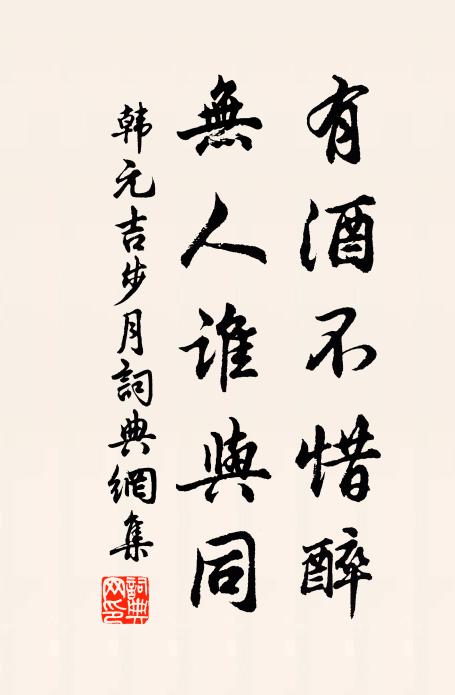 有酒不惜醉
無人誰與同
韩元吉步月詞典網集
詞典網印